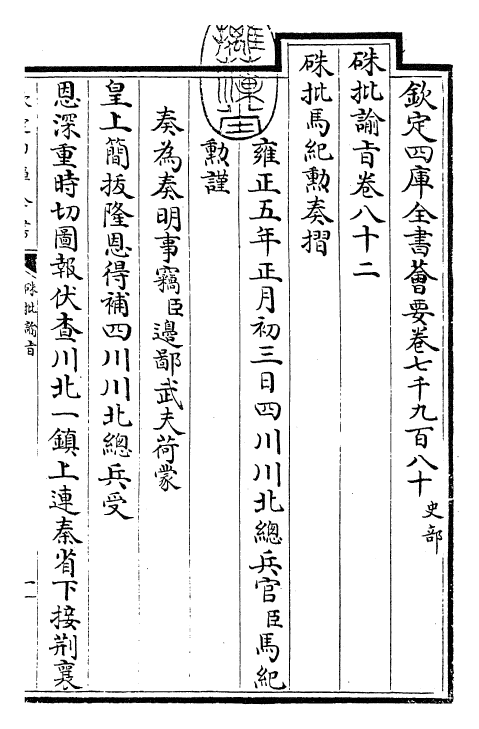 欽定四庫全書薈要卷七千九百八十 史部
硃批諭旨卷八十二
硃批馬紀勲奏摺
雍正五年正月初三日四川川北總兵官臣馬紀
勲謹
奏為奏明事竊臣邊鄙武夫荷蒙
皇上簡拔隆恩得補四川川北總兵受
恩深重時切圖報伏查川北一鎮上連秦省下接荆襄
硃批諭旨
一